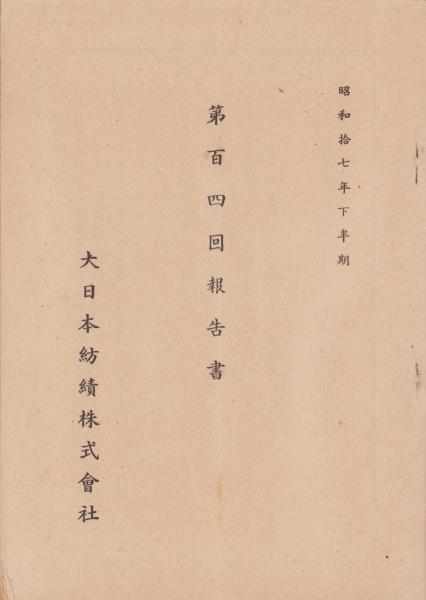 昭和拾七年下半期
第百四回報告書
大日本紡績株式會社